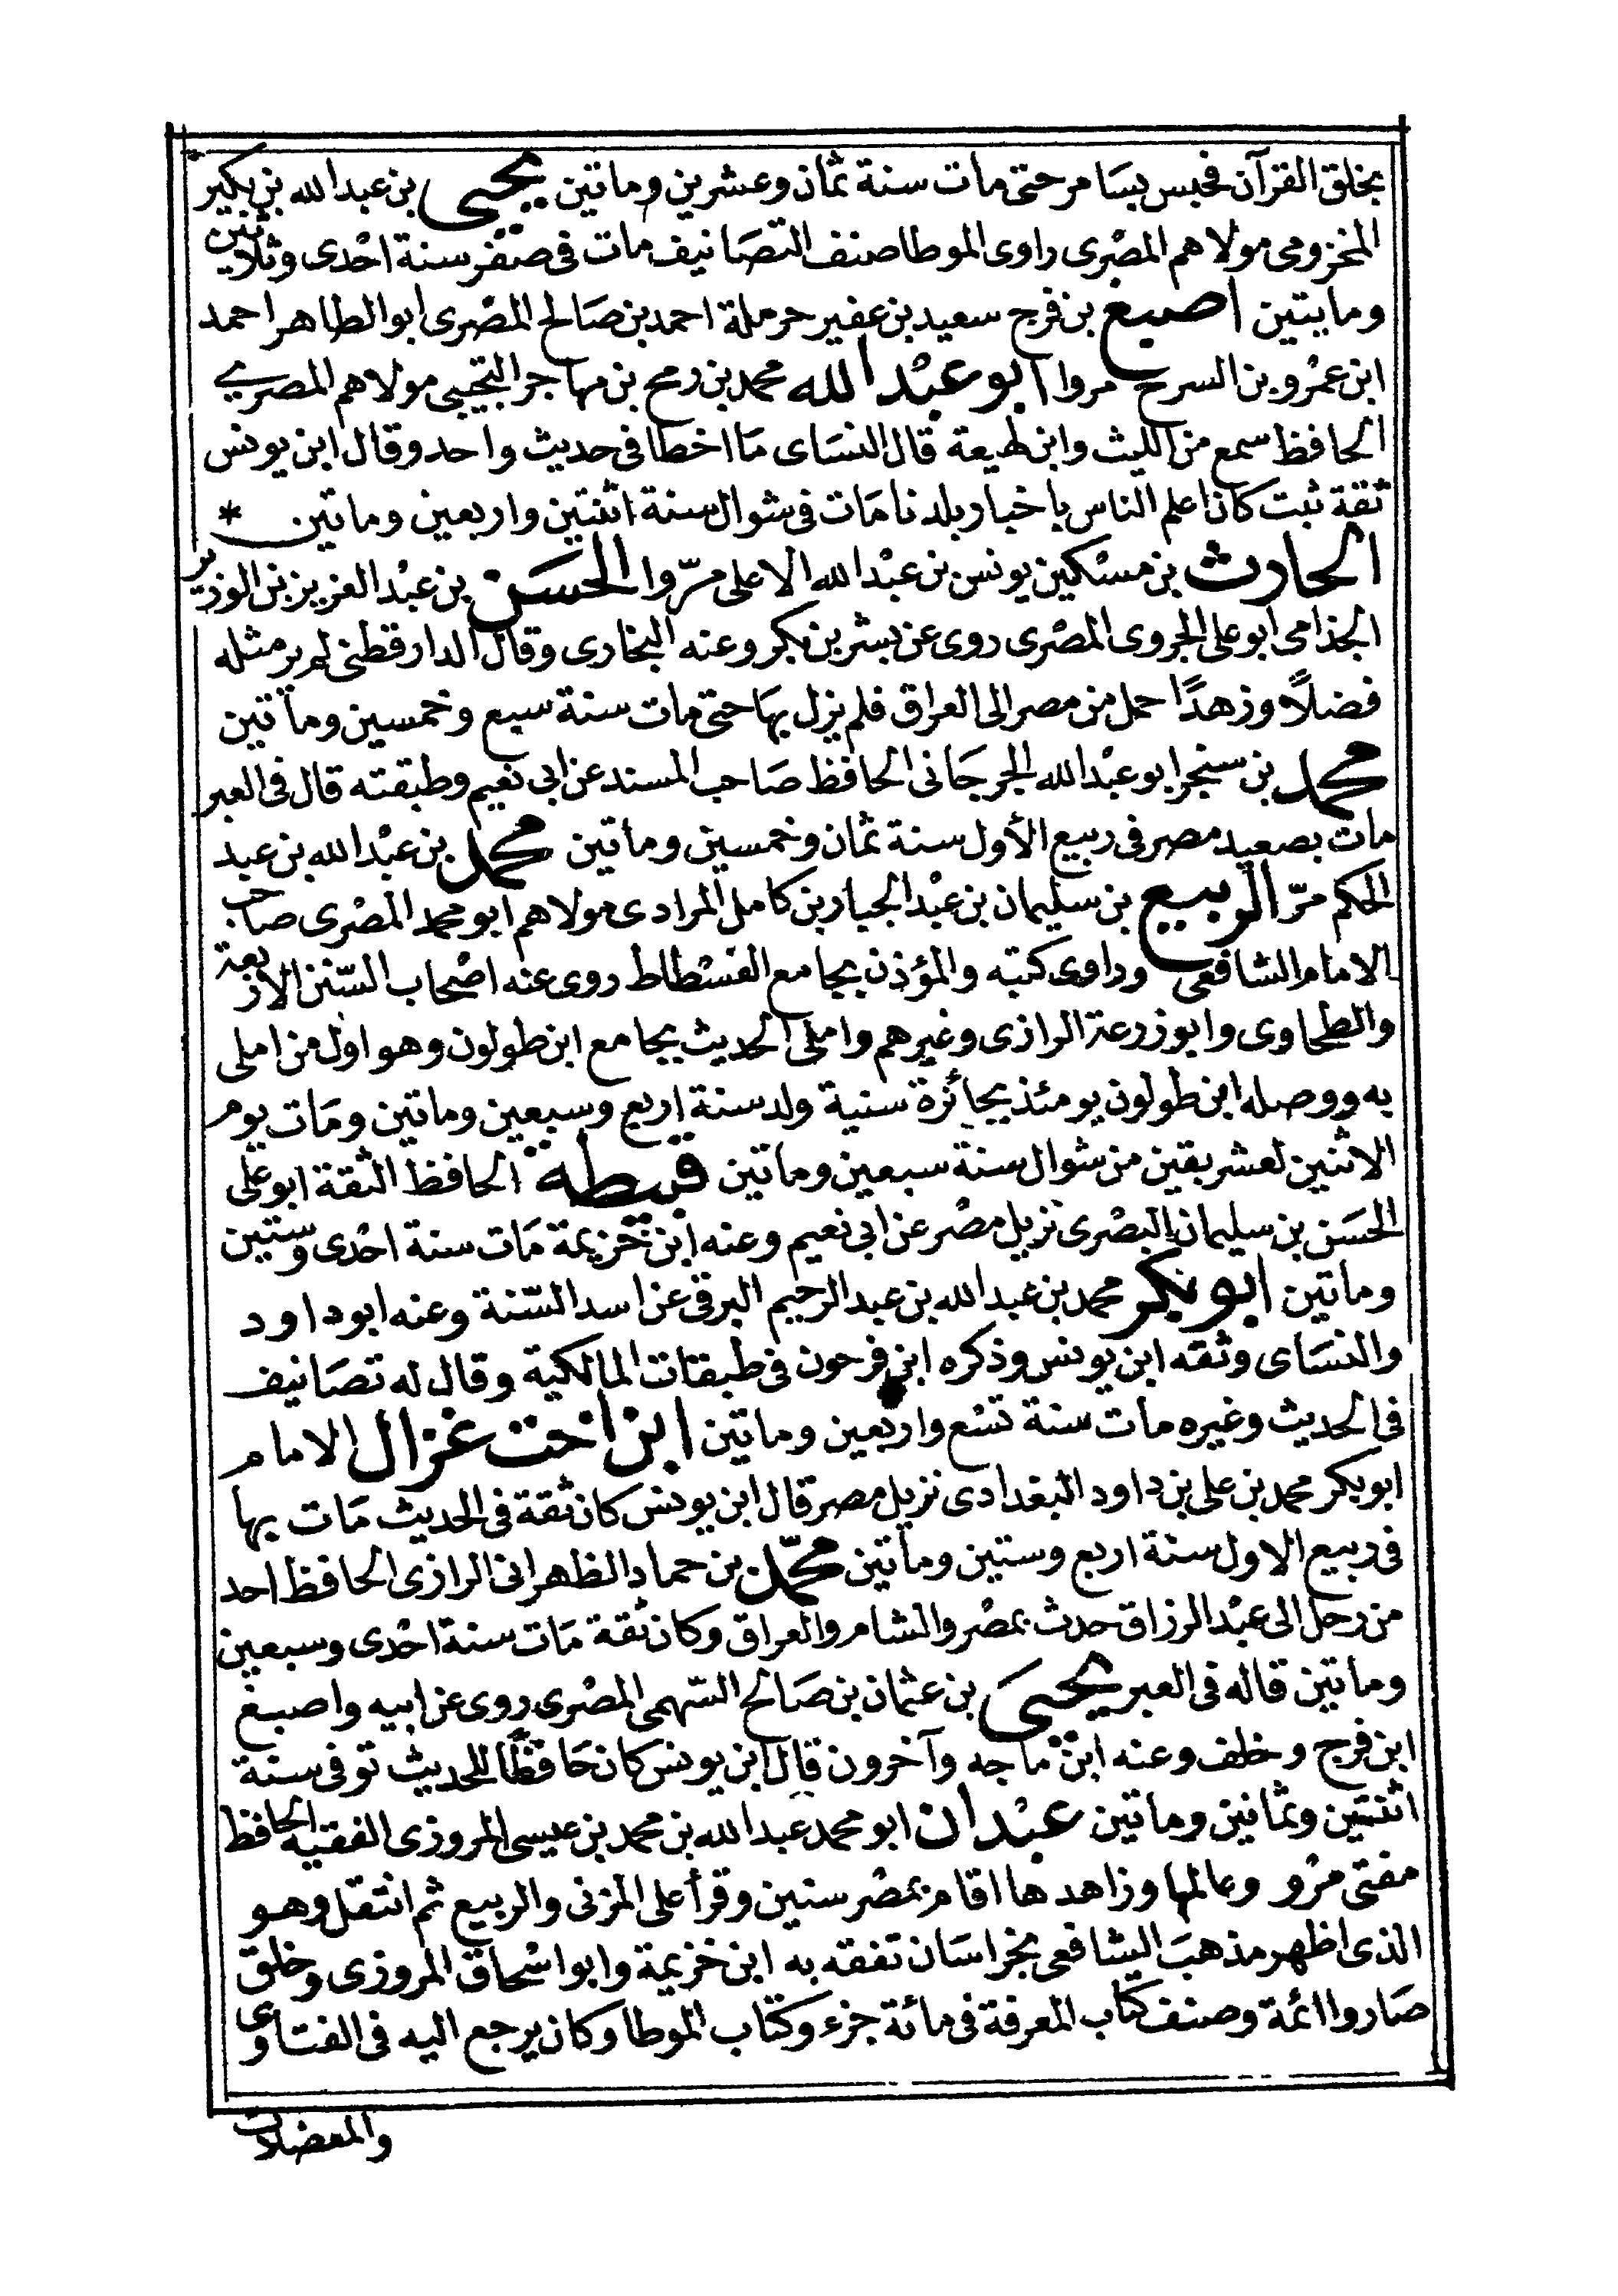 بخلق القرآن فحبس بسامر حتى مات سنة ثمان وعشرين وماتين يحيى بن عبد الله بن بكير
المخزومى مولاهم المصرى راوى الموطا صنف التصانيف مات فى صفر سنة احدى وثلاثين
ومايتين اصبغ بن فرج سعيد بن عفير حرملة احمد بن صالح المصرى ابو الطاهر احمد
ابن عمرو بن السرح مروا ابو عبد الله محمد بن رمح بن مهاجر التجيبى مولاهم المصري
الحافظ سمع من الليث وابن لهيعة قال النساى ما اخطا فى حديث واحد وقال ابن يونس
ثقة ثبت كان اعلم الناس باخبار بلدنا مات فى شوال سنة اثنتين واربعين وماتين *
الحارث بن مسكين يونس بن عبد الله الاعلى مرّوا الحسن بن عبد العزيز بن الوزير
الجذامى ابو على الجروى المصرى روى عن بشر بن بكر وعنه البخارى وقال الدارقطنى لم ير مثله
فضلًا وزهدًا حمل من مصر الى العراق فلم يزل بها حتى مات سنة سبع وخمسين ومأتين
محمد بن سنجر ابو عبد الله الجرجانى الحافظ صاحب المسند عن ابى نعيم وطبقته قال فى العبر
مات بصعيد مصر فى ربيع الأول سنة ثمان وخمسين ومأتين محمد بن عبد الله بن عبد
الحكم مرّ الربيع بن سليمان بن عبد الجبار بن كامل المرادى مولاهم ابو محمد المصرى صاحب
الامام الشافعى وراوى كتبه والمؤذن بجامع الفسطاط روى عنه اصحاب السّنن الاربعة
والطحاوى وابو زرعة الرازى وغيرهم واملى الحديث بجامع ابن طولون وهو اول من املى
به ووصله ابن طولون يومئذ بجائزة سنية ولد سنة اربع وسبعين وماتين ومات يوم
الاثنين لعشر بقين من شوال سنة سبعين وماتين قبيطة الحافظ الثقة ابو على
الحسن بن سليمان البصرى نزيل مصر عن ابى نعيم وعنه ابن خزيمة مات سنة احدى وستين
وماتين ابو بكر محمد بن عبد الله بن عبد الرحيم البرقى عن اسد السّنة وعنه ابو داود
والنساى وثقه ابن يونس وذكره ابن فرحون فى طبقات المالكية وقال له تصانيف
فى الحديث وغيره مات سنة تسع واربعين وماتين ابن اخت غزال الامام
ابو بكر محمد بن على بن داود البغدادى نزيل مصر قال ابن يونس كان ثقة فى الحديث مات بها
فى ربيع الاول سنة اربع وستين ومأتين محمّد بن حماد الظهرانى الرازى الحافظ احد
من رحل الى عبد الرزاق حدث بمصر والشام والعراق وكان ثقة مات سنة احدى وسبعين
ومأتين قاله فى العبر يحيى بن عثمان بن صالح السّهمى المصرى روى عن ابيه واصبغ
ابن فرج وخلف وعنه ابن ماجه وآخرون قال ابن يونس كان حافظًا للحديث توفى سنة
اثنتين وثمانين وماتين عبدان ابو محمد عبد الله بن محمد بن عيسى المروزى الفقيه الحافظ
مفتى مرو وعالمها وزاهدها اقام بمصر سنين وقرأ على المزنى والربيع ثم انتقل وهو
الذى اظهر مذهب الشافعى بخراسان تفقه به ابن خزيمة وابو اسحاق المروزى وخلق
صاروا ائمة وصنف كتاب المعرفة فى مائة جزء وكتاب الموطا وكان يرجع اليه فى الفتاوى
والمعضلات